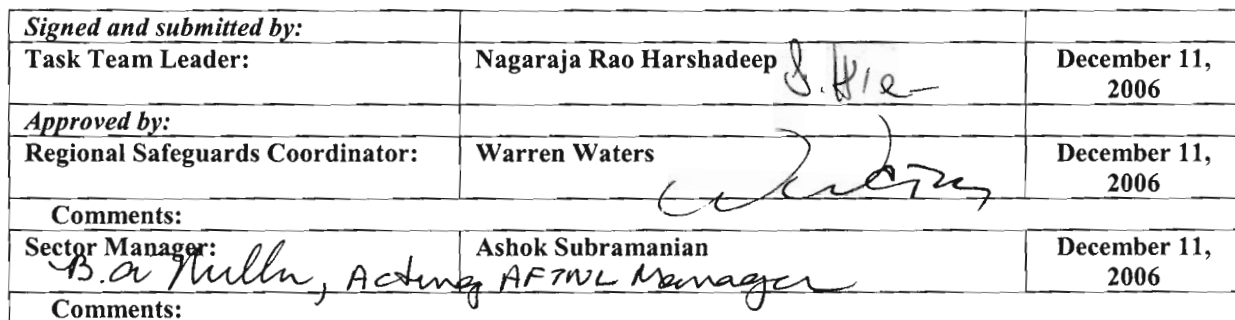 Signed and submitted by:
Task Team Leader: Nagaraja Rao Harshadeep December 11, 2006
Approved by:
Regional Safeguards Coordinator: Warren Waters December 11, 2006
Comments:
Sector Manager: Ashok Subramanian December 11, 2006
Acting AFTWL Manager
Comments: